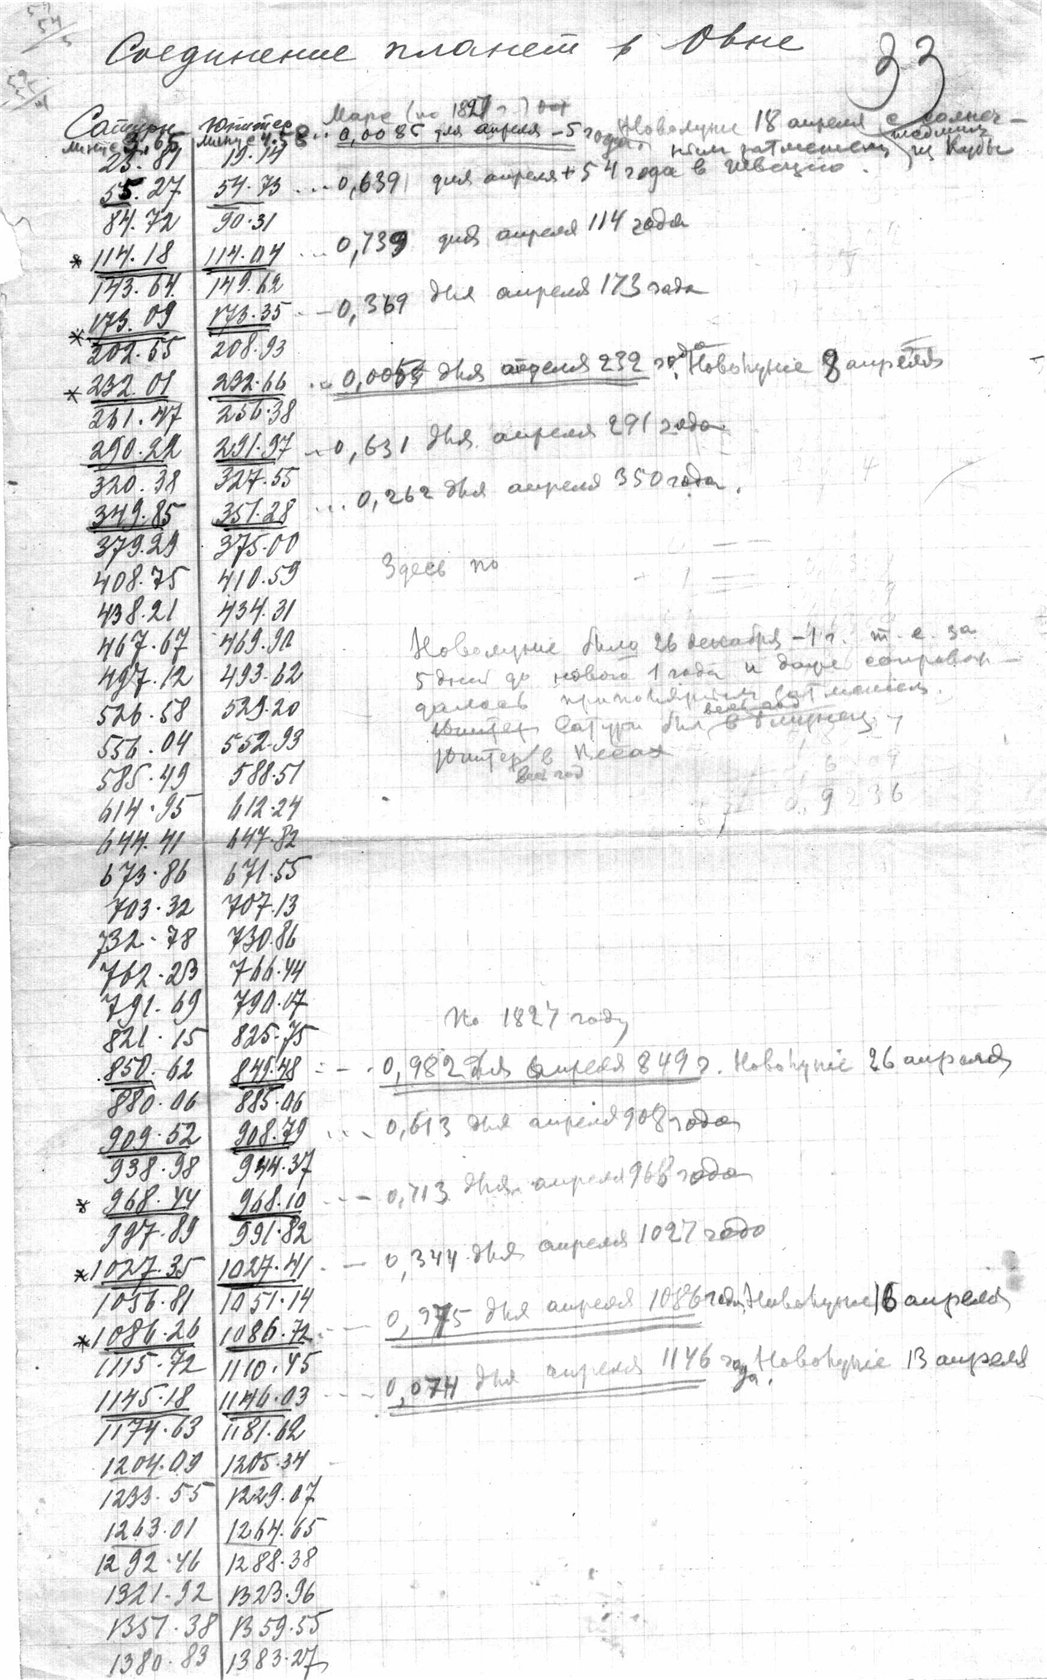 Соединение планет в Овне
33
Сатурн Юпитер Марс (по 1827 г.)
минус 3.65 минус 4.58 ... 0,0085 дня апреля -5 года. Новолуние 18 апреля с солнеч-
ным затмением из Кубы
25.81 19.14
55.27 54.73 ... 0,639 дня апреля + 54 года в Швецию.
84.72 90.31
* 114.18 114.04 ... 0,739 дня апреля 114 года
143.64 149.62
* 173.09 173.35 ... 0,369 дня апреля 173 года
202.55 208.93
* 232.01 232.66 ... 0,0055 дня апреля 232 года. Новолуние 8 апреля
261.47 256.38
290.22 291.97 ... 0,631 дня апреля 291 года
320.38 327.55
349.85 351.28 ... 0,262 дня апреля 350 года.
379.29 375.00
Здесь по
408.75 410.59
438.21 434.31
467.67 469.90 Новолуние было 26 декабря -1 г. т.е. за
497.12 493.62 5 дней до нового 1 года и даже сопровож-
526.58 529.20 далось приполярным затмением.
весь год
556.04 552.93 Сатурн был в Близнец,
585.49 588.51 Юпитер в Весах
весь год
614.95 612.24
0,9236
644.41 647.82
673.86 671.55
703.32 707.13
732.78 730.86
762.23 766.44
791.69 790.17
По 1827 году
821.15 825.75
850.62 849.48 ... 0,982 дня апреля 849 г. Новолуние 26 апреля
880.06 885.06
909.52 908.79 ... 0,613 дня апреля 908 года
938.98 944.37
* 968.44 968.10 ... 0,713 дня апреля 968 года
997.89 991.82
* 1027.35 1027.41 ... 0,344 дня апреля 1027 года
1056.81 1051.14
* 1086.26 1086.72 ... 0,975 дня апреля 1086 года, Новолуние 16 апреля
1115.72 1110.45
1145.18 1146.03 ... 0,074 дня апреля 1146 года. Новолуние 13 апреля
1174.63 1181.62
1204.09 1205.34
1233.55 1229.07
1263.01 1264.65
1292.46 1288.38
1321.92 1323.96
1351.38 1359.55
1380.83 1383.27